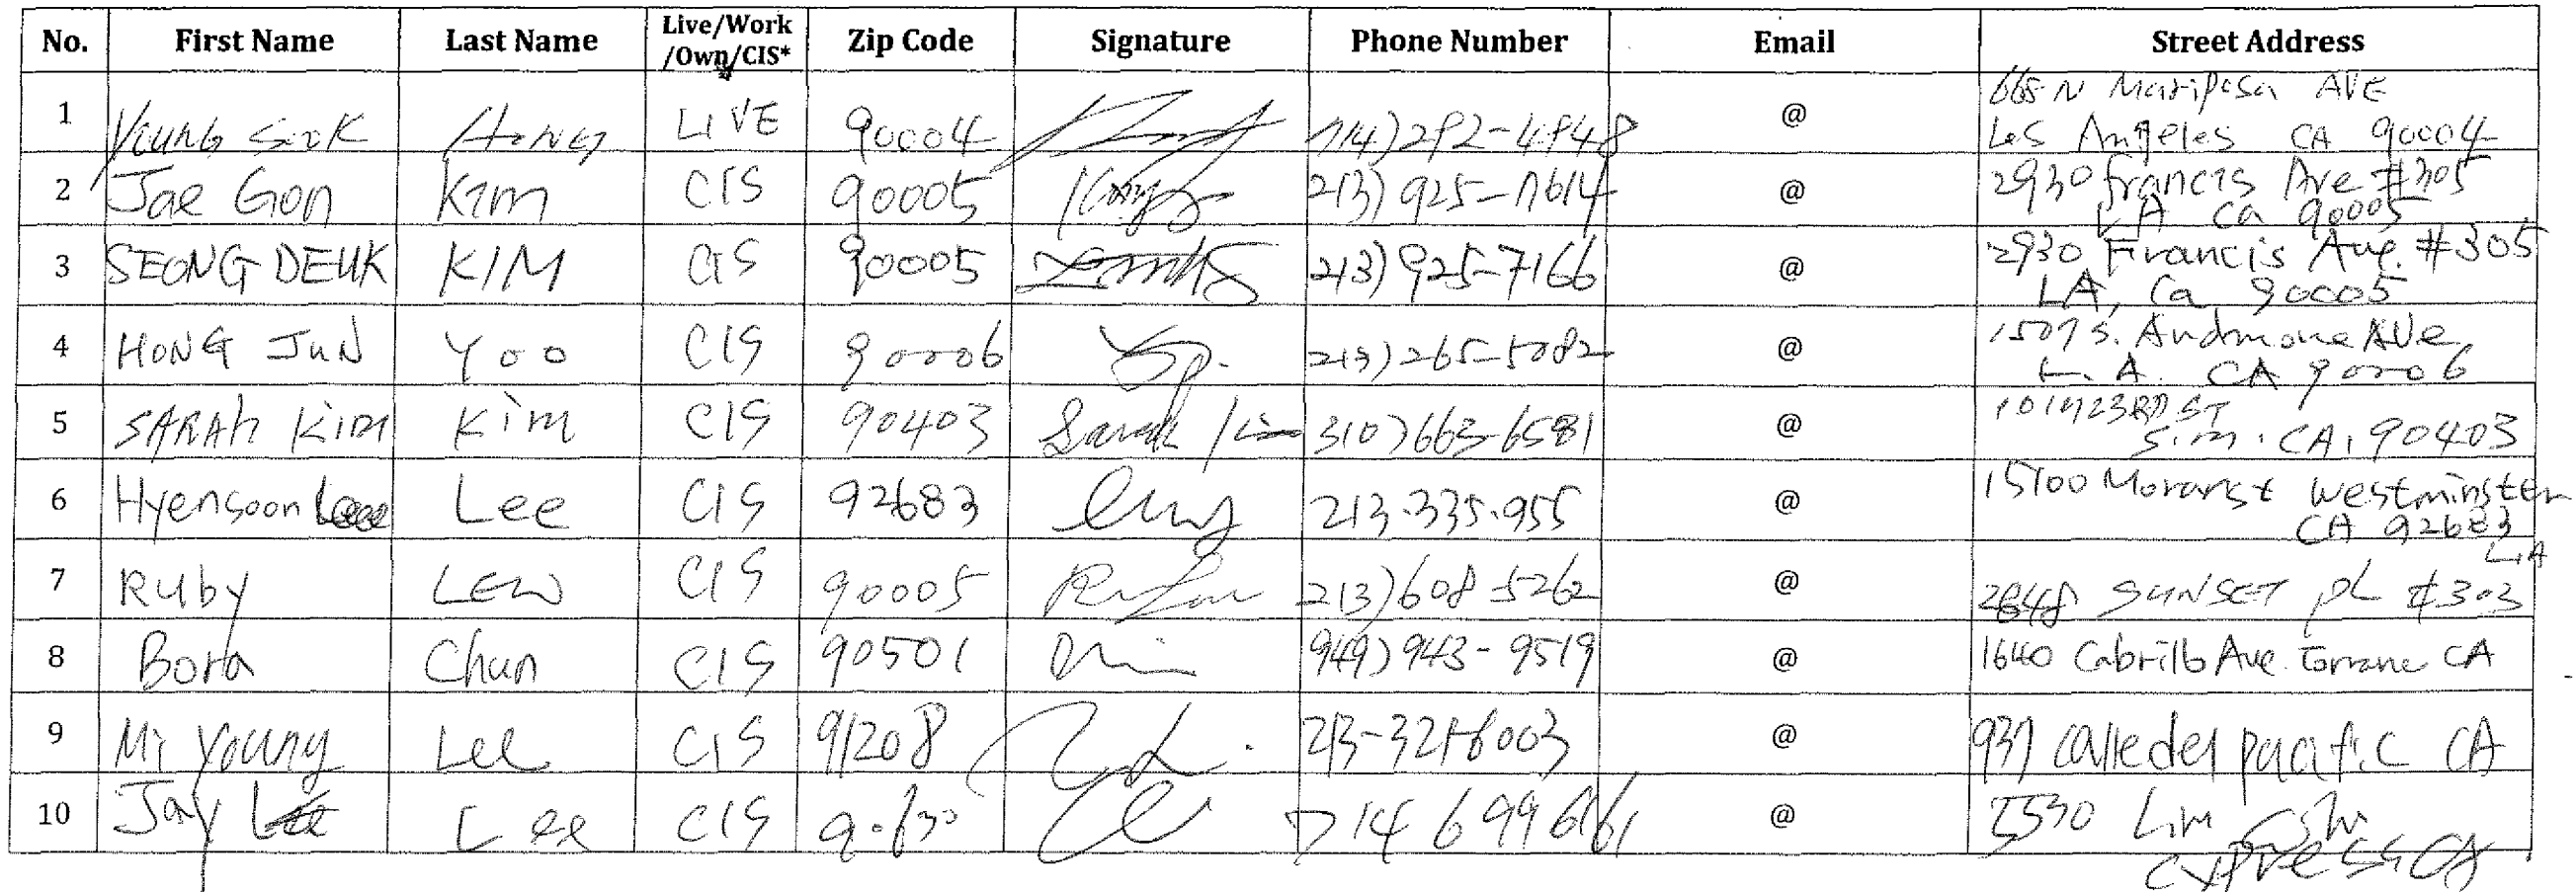 No. First Name Last Name Live/Work /Own/CIS* Zip Code Signature Phone Number Email Street Address
1 Young Sook Hong LIVE 90004 714)292-4848 @ 665 N Mariposa AVE
Los Angeles CA 90004
2 Jae Gon Kim CIS 90005 213) 925-7614 @ 2930 francis Ave #305
LA Ca 90005
3 SEONG DEUK KIM CIS 90005 213) 925-7166 @ 2930 Francis Ave. #305
LA, Ca 90005
4 HONG JUN Yoo CIS 90006 213) 265-5082 @ 1507 S. Ave
L.A. CA 90006
5 SARAH KIM Kim CIS 90403 Sarah Kim 310)663-6581 @ 1017 23RD ST
S.M. CA, 90403
6 Hyensoon Lee CIS 92683 213.335.955 @ 15100 Moran st Westminster
CA 92683
7 Ruby LEW CIS 90005 213)608-5262 @ 2848 SUNSET PL #303
L.A
8 Bora Chun CIS 90501 949) 943-9519 @ 1640 Cabrillo Ave. Torrance CA
9 Mi Young Lee CIS 91208 213-321-6003 @ 937 calle del pacific CA
10 Jay Lee CIS 714 699 6161 @ 5530
Cypress CA